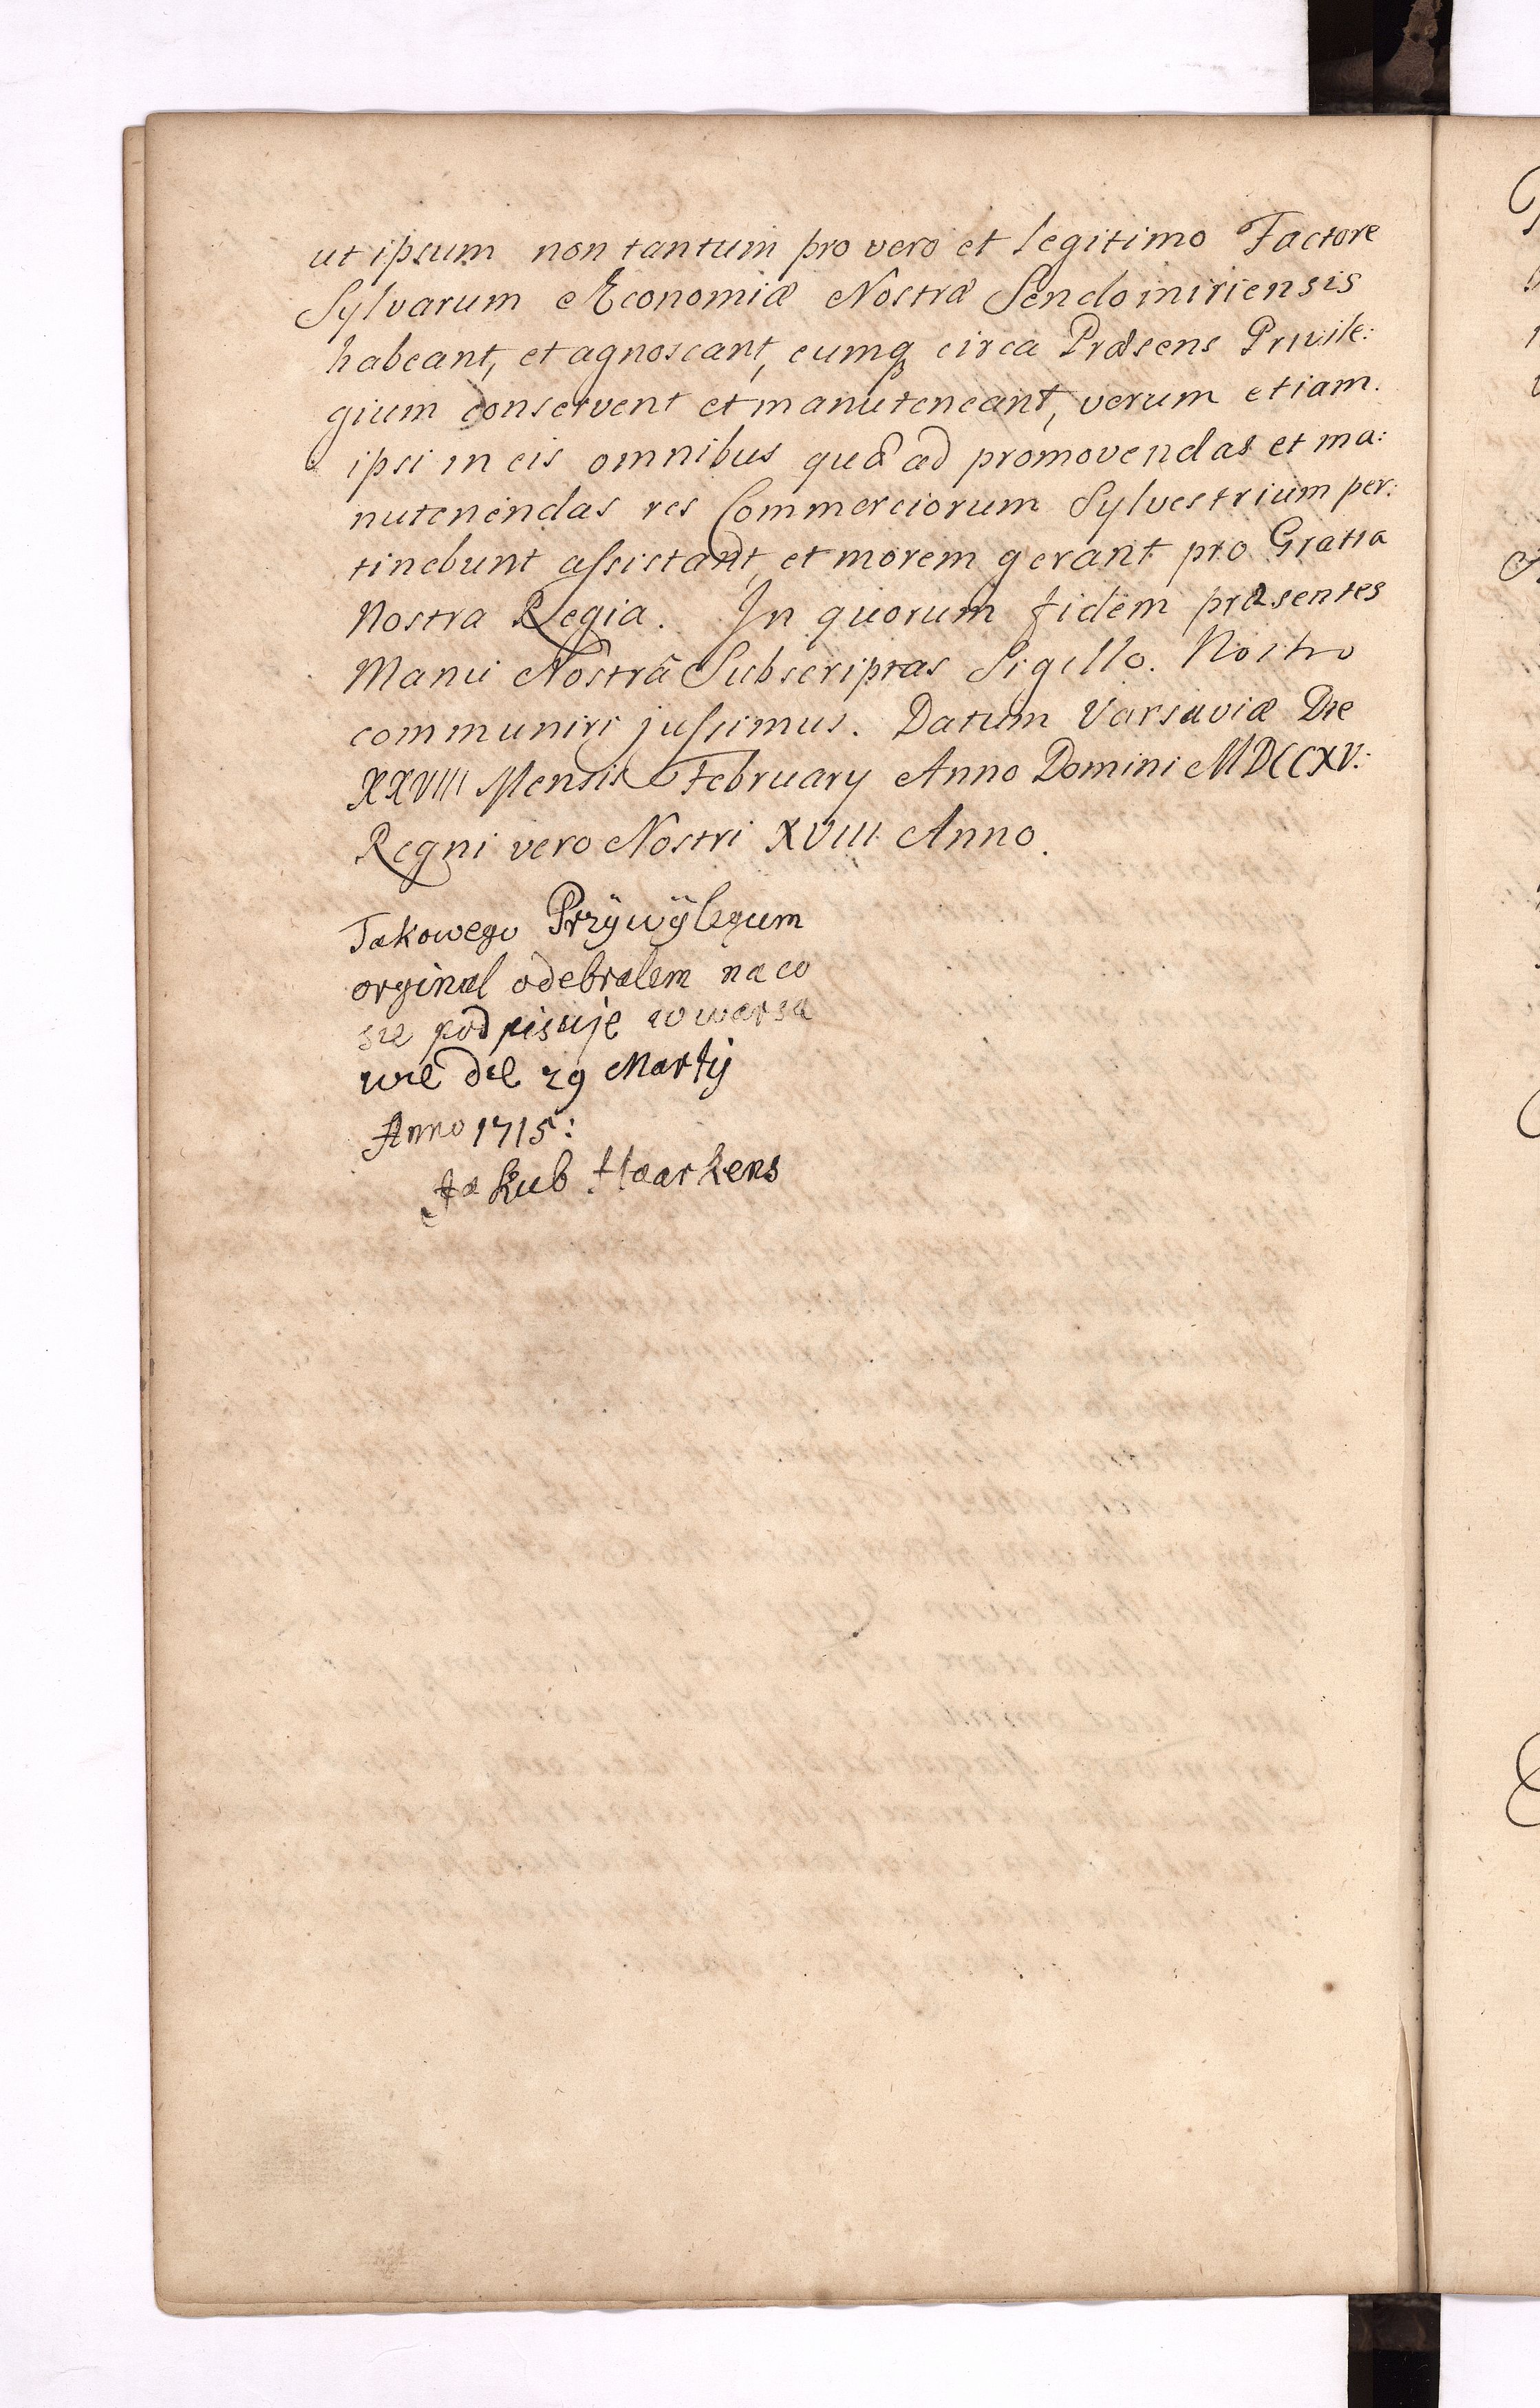 ut ipsum non tantum pro vero et legitimo Factore
Sylvarum Æconomiæ Nostræ Sendomiriensis
habeant, et agnoscant, eumq circa Præsens Privile:
gium conservent et manuteneant, verum etiam.
ipsi in eis omnibus quæ ad promovendas et ma:
nutenendas res Commerciorum Sylvestrium per:
tinebunt assistant, et morem gerant pro Gratia
Nostra Regia. In quorum fidem præsentes
Manu Nostrâ Subscriptas Sigillo. Nostro
communiri jussimus. Datum Varsaviæ Die
XXVIII Mensis February Anno Domini MDCCXV.
Regni vero Nostri XVIII Anno.
Takowego Przÿwÿlegum
orginal odebralem na co
sie podpisuje w warsa
wie die 29 Martÿ
Anno 1715:
Jakub Haarkens